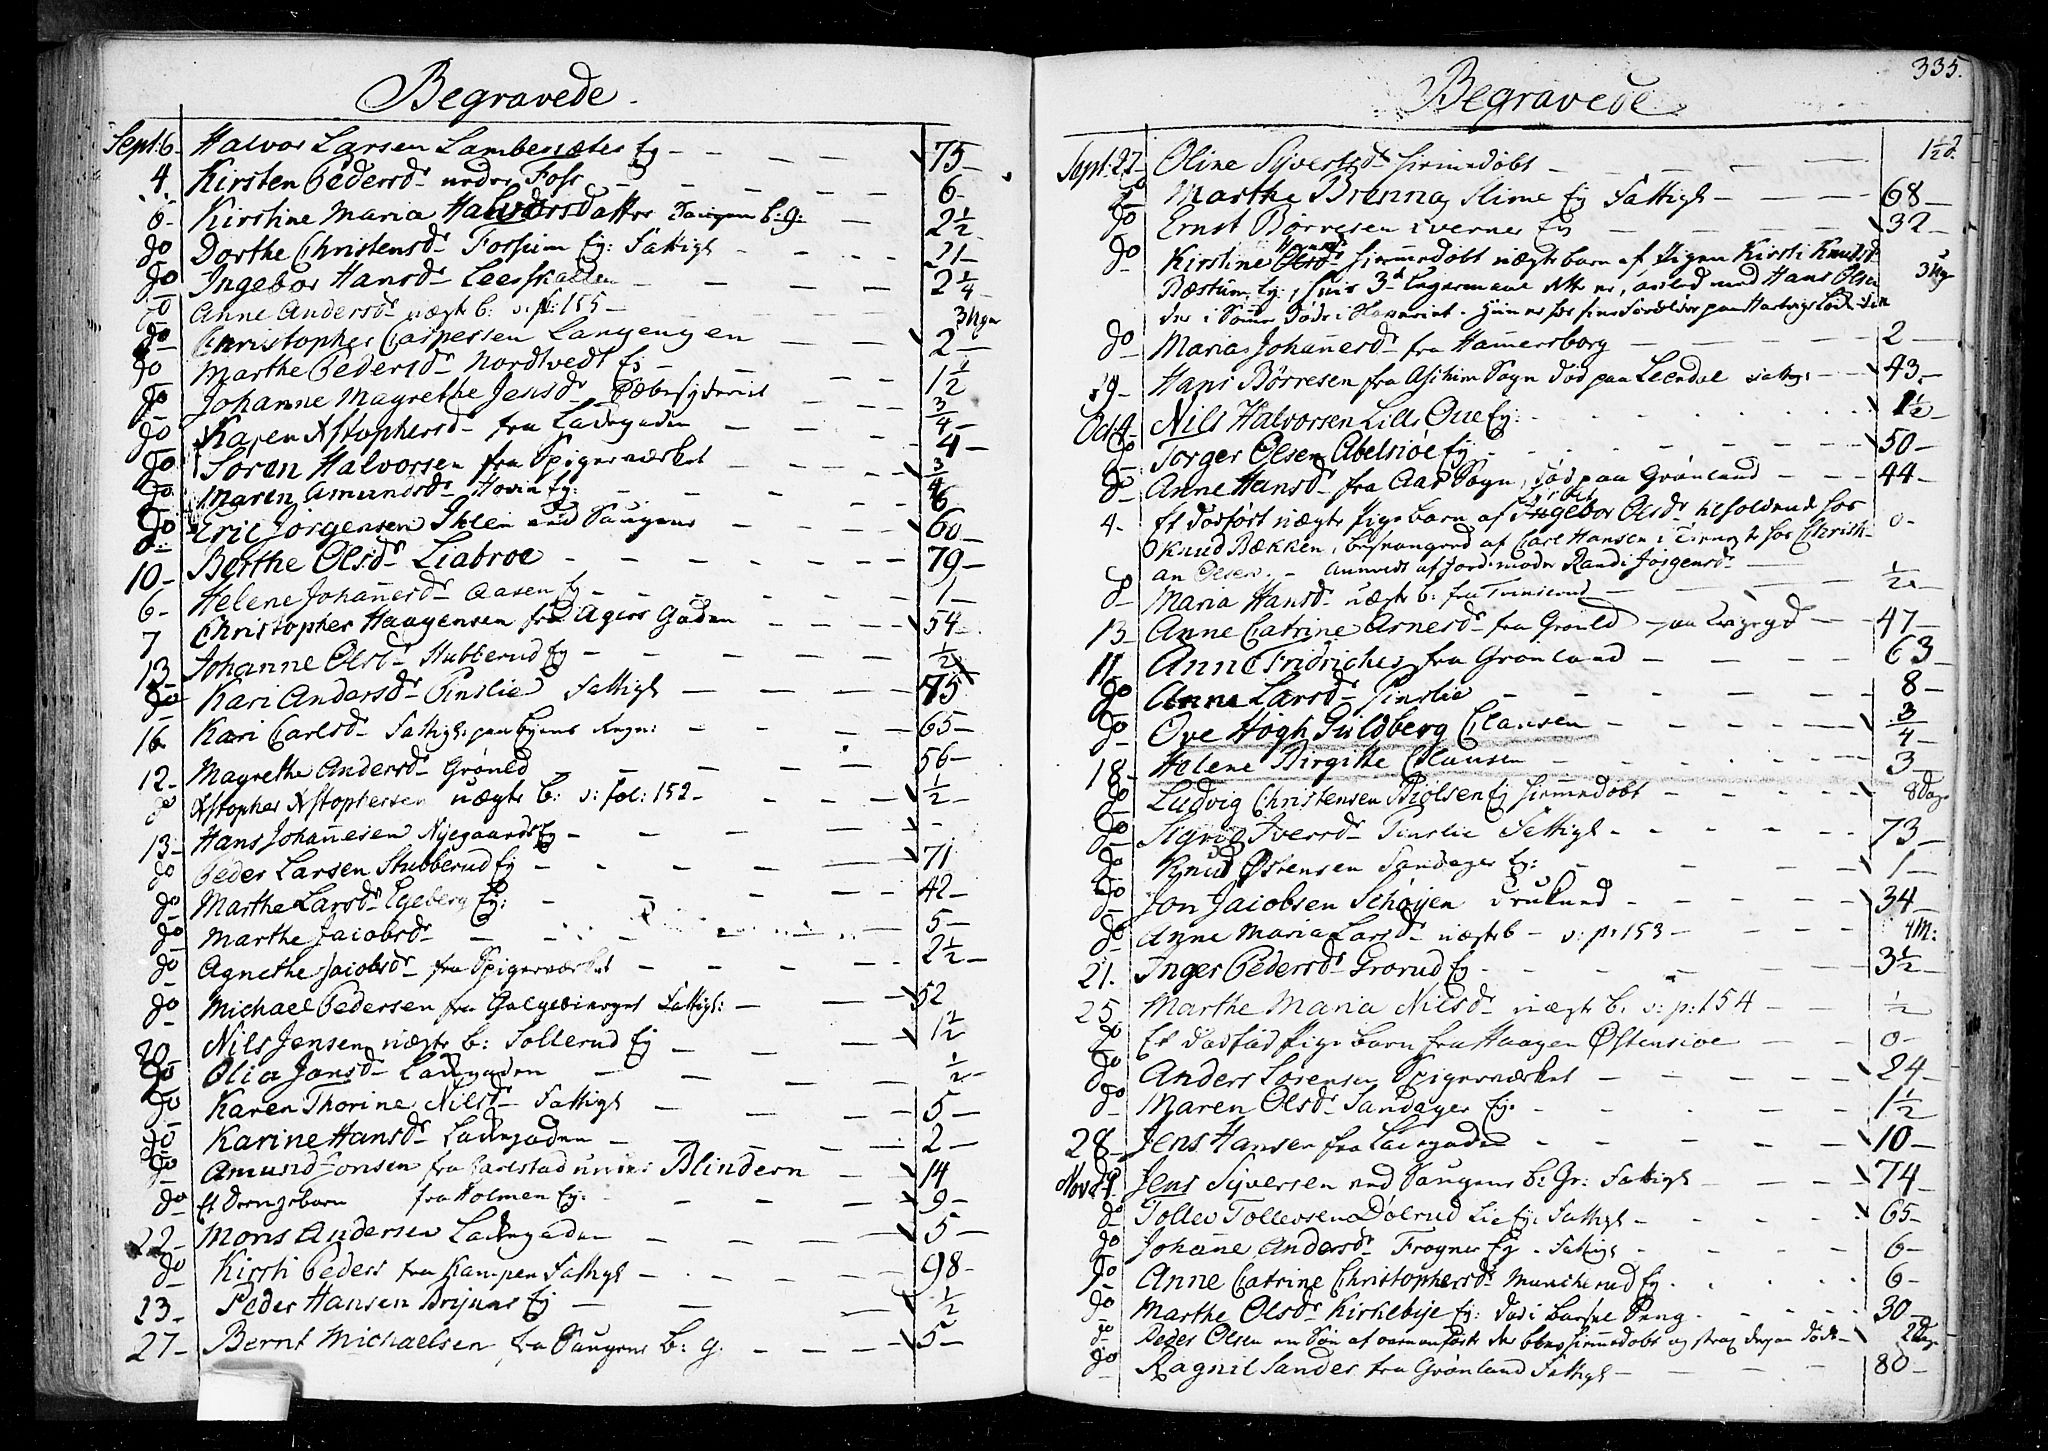 Begravede.
Sept: 6. Halvor Larsen Lambersæter Ey 75
4. Kirsten Pedersd. neder Foss 6
6 Kirstine Maria Halvorsdatter Saugene b: g: 2½
do Dorthe Christensd. Fossum Ey: Fattigl 21
do Ingebor Hansd. Leerskallen 2¼
do Anne Andersd. uægte b: v: p: 155 3 Uger
do Christopher Caspersen Langengen 2
do Marthe Pedersd. Nordtvedt Ey
do Johanne Magrethe Jensd. 1½
do Karen Xstophersd. fra Ladegaden ¾
do Søren Halvorsen fra Spigerværket 4
do Maren Amundsd. Hovin Ey: ¾
do Eric Jörgensen Ihlen ved Saugene 60
do Berthe Olsd. Liabroe 79
10 Helene Johannesd. Aasen Ey 1
6 Christopher Haagensen fra Agers Gaden 54
7 Johanne Olsd. Stubberud Ey ½
13 Kari Andersd. Tinslie Fattigl 75
16 Kari Carlsd. Fattigl: paa Eyens Regn: 65
12 Magrethe Andersd. Grønld 56
do Xstopher Xstophersen uægte b: v: fol: 152 ½
13 Hans Johannesen Nyegaards Ey
do Peder Larsen Stubberud Ey 71
do Marthe Larsd. Egeberg Ey: 42
do Marthe Jacobsd. 5
do Agnethe Jacobsd. fra Spigerværket 2½
do Michael Pedersen fra Galgebierget Fattigl: 52
20 Nils Jensen uægte b: Sollerud Ey 1½
do Olia Jansd. Ladegaden ½
do Karen Thorine Nilsd. Fattigl 5
do Karine Hansd. Ladegaden 2
do Amund Jonsen fra Carlstad under Blindern 14
do Et Drengebarn fra Holmen Ey: 9
22 Mons Andersen Ladegaden 5
do Kirsti Peders fra Kampen Fattigl 98
23 Peder Hansen Ey ½
27 Bernt Michaelsen fra Saugene b: g. 5
335.
Begravede
Sept: 27 Oline Syvertsd. hiemmedøbt 1½ d.
do Marthe Brenna Slime Ey Fattigl 68
do Ernst Börresen Ey 32
do Kirstine Hansd. hiemmedöbt uægte barn af Pigen Kirsti Knudsd 3 Ug
Bæstum Ey, hvis 3d Leyermaal dette er, avled med Hans Olsen
der i Somer døde i
do Maria Johannesd. fra Hamersborg 2
29 Hans Börresen fra Asehim Sogn död paa Leendal 43
Oct: 4 Nils Halvorsen Lille Ey: 1½
do Torger Olsen Abelsiöe Ey 50
do Anne Hansd. fra Aas Sogn, död paa Grønland 44
4 Et dödfödt uægte Pige barn af Ingebor Olsd. hos 0
Knud Bækken, besvangred af Carl Hansen i hos Christi-
an Olsen. Anmeldt af Jordemoder Randi Jörgensd.
do Maria Hansd. uægte b: fra ½
13 Anne Catrine Arnesd. fra Grønld 47
11 Anne Fridriches fra Grønland 63
do Anne Larsd. Tinslie 8
do Ove Högh Guldberg Clausen ¾
18 Helene Birgitte Clausen 3
do Ludvig Christensen Biölsen Ey hiemmedøbt 8 Dage
do Sigrid Iversd. Tinslie Fattigl 73
do Knud Östensen Sandager Ey: 1
do Jon Jacobsen Schøyen 34
do Anne Maria Larsd. uægte b v: p: 153 4 M:
21. Inger Pedersd. Grorud Ey 3½
25 Marthe Maria Nilsd. uægte b: v: p: 154 ½
do Et dødfød Pige barn fra Haagen Östensiöe 0
do Anders Sörensen Spigerværket 24
do Maren Olsd. Sandager Ey: 1½
28 Jens Hansen fra Ladegaden 10
Nov: 1 Jens Syversen ved Saugene b: Gr: Fattigl 74
do Tollev Tollevsen Dølerud Lie Ey: Fattigl 65
do Johanne Andersd. Frogner Ey. Fattigl 6
do Anne Catrine Christophersd. Muncherud Ey. 6
do Marthe Olsd. Kirkebye Ey: död i Barsel Seng 30
do Peder Olsen en Sön af den blev hiemmedöbt og strax derpaa døde 2 Dage
do Ragnil Sander fra Grønland Fattigl 80